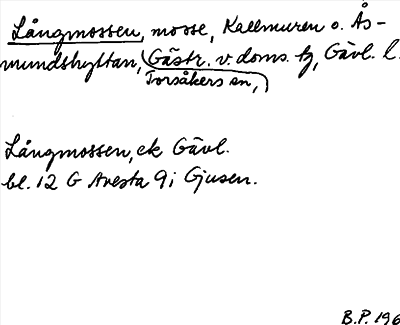 Långmossen, mosse, Kallmuren o. Ås-
mundshyttan, Gästr. v. doms. tg, Gävl. l.
Torsåkers sn,
Långmossen, ek Gävl.
bl. 12 G Avesta 9i Gjusen.
B.P. 196